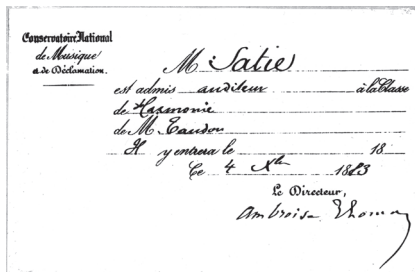 Conservatoire National
de Musique
et de Déclamation.
M. Satie
est admis auditeur à la Classe
de Harmonie
de M. Taudou
Il y entrera le 18
Ce 4 Xbre 1883
Le Directeur,
Ambroise Thomas